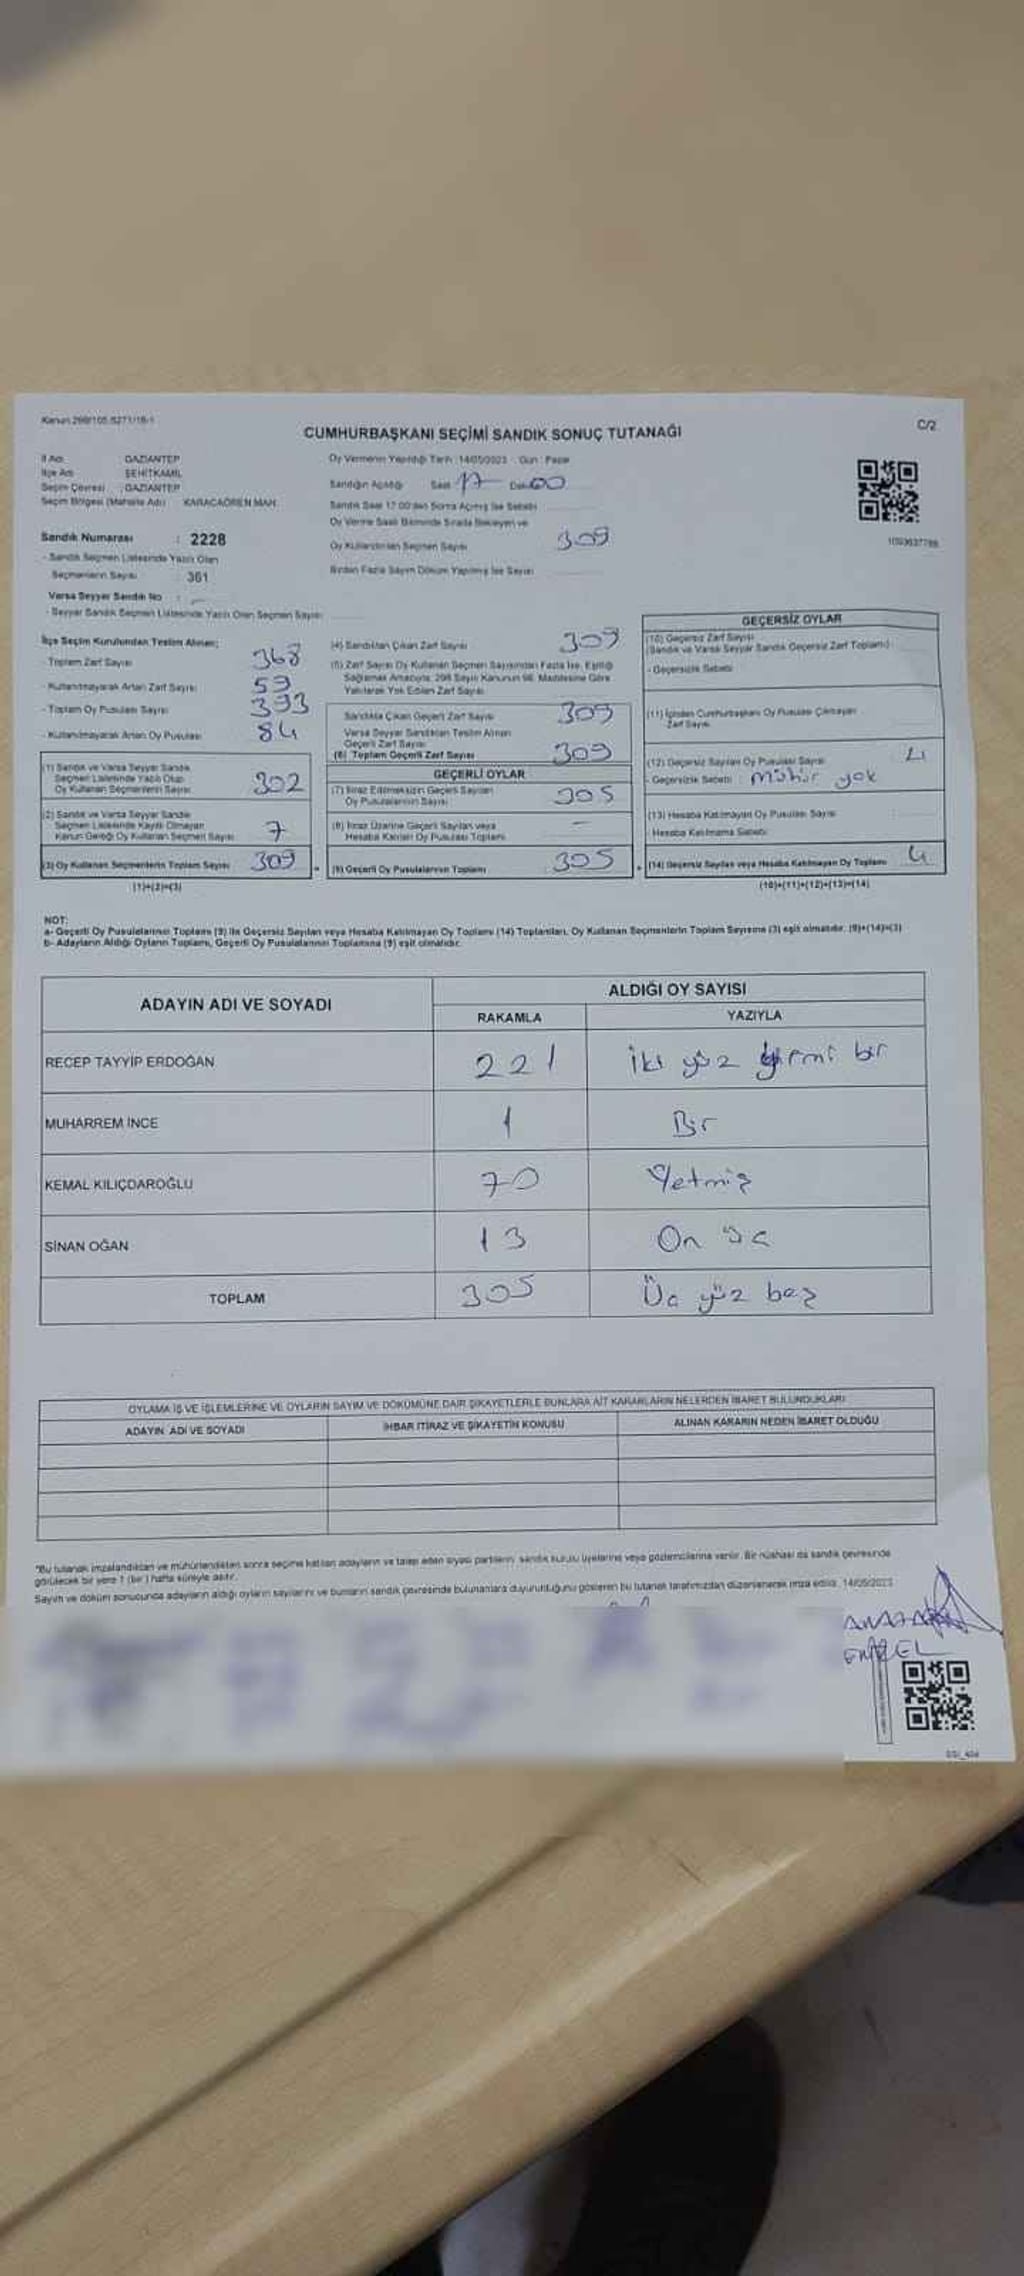 Kanun 298/105,6271/18-1
CUMHURBAŞKANI SEÇİMİ SANDIK SONUÇ TUTANAĞI
C/2
İl Adı GAZİANTEP
İlçe Adı ŞEHİTKAMİL
Seçim Çevresi : GAZİANTEP
Seçim Bölgesi (Mahalle Adı) KARACAÖREN MAH.
Oy Vermenin Yapıldığı Tarih : 14/05/2023 - Gün : Pazar
Sandığın Açıldığı Saat 17 Dak. 00
Sandık Saat 17.00'den Sonra Açılmış İse Sebebi
Oy Verme Saati Bitiminde Sırada Bekleyen ve
Oy Kullandırılan Seçmen Sayısı 309
Birden Fazla Sayım Döküm Yapılmış İse Sayısı
Sandık Numarası : 2228
- Sandık Seçmen Listesinde Yazılı Olan
Seçmenlerin Sayısı : 361
Varsa Seyyar Sandık No :
- Seyyar Sandık Seçmen Listesinde Yazılı Olan Seçmen Sayısı
İlçe Seçim Kurulundan Teslim Alınan;
- Toplam Zarf Sayısı 368
- Kullanılmayarak Artan Zarf Sayısı 59
- Toplam Oy Pusulası Sayısı 393
- Kullanılmayarak Artan Oy Pusulası 84
(1) Sandık ve Varsa Seyyar Sandık
Seçmen Listesinde Yazılı Olup
Oy Kullanan Seçmenlerin Sayısı 302
(2) Sandık ve Varsa Seyyar Sandık
Seçmen Listesinde Kayıtlı Olmayan
Kanun Gereği Oy Kullanan Seçmen Sayısı 7
(3) Oy Kullanan Seçmenlerin Toplam Sayısı 309
(1)+(2)=(3)
(4) Sandıktan Çıkan Zarf Sayısı 309
(5) Zarf Sayısı Oy Kullanan Seçmen Sayısından Fazla İse, Eşitliği
Sağlamak Amacıyla, 298 Sayılı Kanunun 98. Maddesine Göre
Yakılarak Yok Edilen Zarf Sayısı
Sandıkta Çıkan Geçerli Zarf Sayısı 309
Varsa Seyyar Sandıktan Teslim Alınan
Geçerli Zarf Sayısı
(6) Toplam Geçerli Zarf Sayısı 309
GEÇERLİ OYLAR
(7) İtiraz Edilmeksizin Geçerli Sayılan
Oy Pusulalarının Sayısı 305
(8) İtiraz Üzerine Geçerli Sayılan veya
Hesaba Katılan Oy Pusulası Toplamı –
(9) Geçerli Oy Pusulalarının Toplamı 305
GEÇERSİZ OYLAR
(10) Geçersiz Zarf Sayısı
(Sandık ve Varsa Seyyar Sandık Geçersiz Zarf Toplamı)
- Geçersizlik Sebebi
(11) İçinden Cumhurbaşkanı Oy Pusulası Çıkmayan
Zarf Sayısı
(12) Geçersiz Sayılan Oy Pusulası Sayısı 4
- Geçersizlik Sebebi : mühür yok
(13) Hesaba Katılmayan Oy Pusulası Sayısı
- Hesaba Katılmama Sebebi
(14) Geçersiz Sayılan veya Hesaba Katılmayan Oy Toplamı 4
(10)+(11)+(12)+(13)=(14)
NOT:
a- Geçerli Oy Pusulalarının Toplamı (9) ile Geçersiz Sayılan veya Hesaba Katılmayan Oy Toplamı (14) Toplamları, Oy Kullanan Seçmenlerin Toplam Sayısına (3) eşit olmalıdır. (9)+(14)=(3)
b- Adayların Aldığı Oyların Toplamı, Geçerli Oy Pusulalarının Toplamına (9) eşit olmalıdır.
ADAYIN ADI VE SOYADI
ALDIĞI OY SAYISI
RAKAMLA YAZIYLA
RECEP TAYYİP ERDOĞAN 221 İki yüz yirmi bir
MUHARREM İNCE 1 Bir
KEMAL KILIÇDAROĞLU 70 Yetmiş
SİNAN OĞAN 13 On üç
TOPLAM 305 Üç yüz beş
OYLAMA İŞ VE İŞLEMLERİNE VE OYLARIN SAYIM VE DÖKÜMÜNE DAİR ŞİKAYETLERLE BUNLARA AİT KARARLARIN NELERDEN İBARET BULUNDUKLARI
ADAYIN ADI VE SOYADI İHBAR İTİRAZ VE ŞİKAYETİN KONUSU ALINAN KARARIN NEDEN İBARET OLDUĞU
*Bu tutanak imzalandıktan ve mühürlendikten sonra seçime katılan adayların ve talep eden siyasi partilerin sandık kurulu üyelerine veya gözlemcilerine verilir. Bir nüshası da sandık çevresinde
görülecek bir yere 1 (bir) hafta süreyle asılır.
Sayım ve döküm sonucunda adayların aldığı oyların sayılarını ve bunların sandık çevresinde bulunanlara duyurulduğunu gösteren bu tutanak tarafımızdan düzenlenerek imza edildi. 14/05/2023